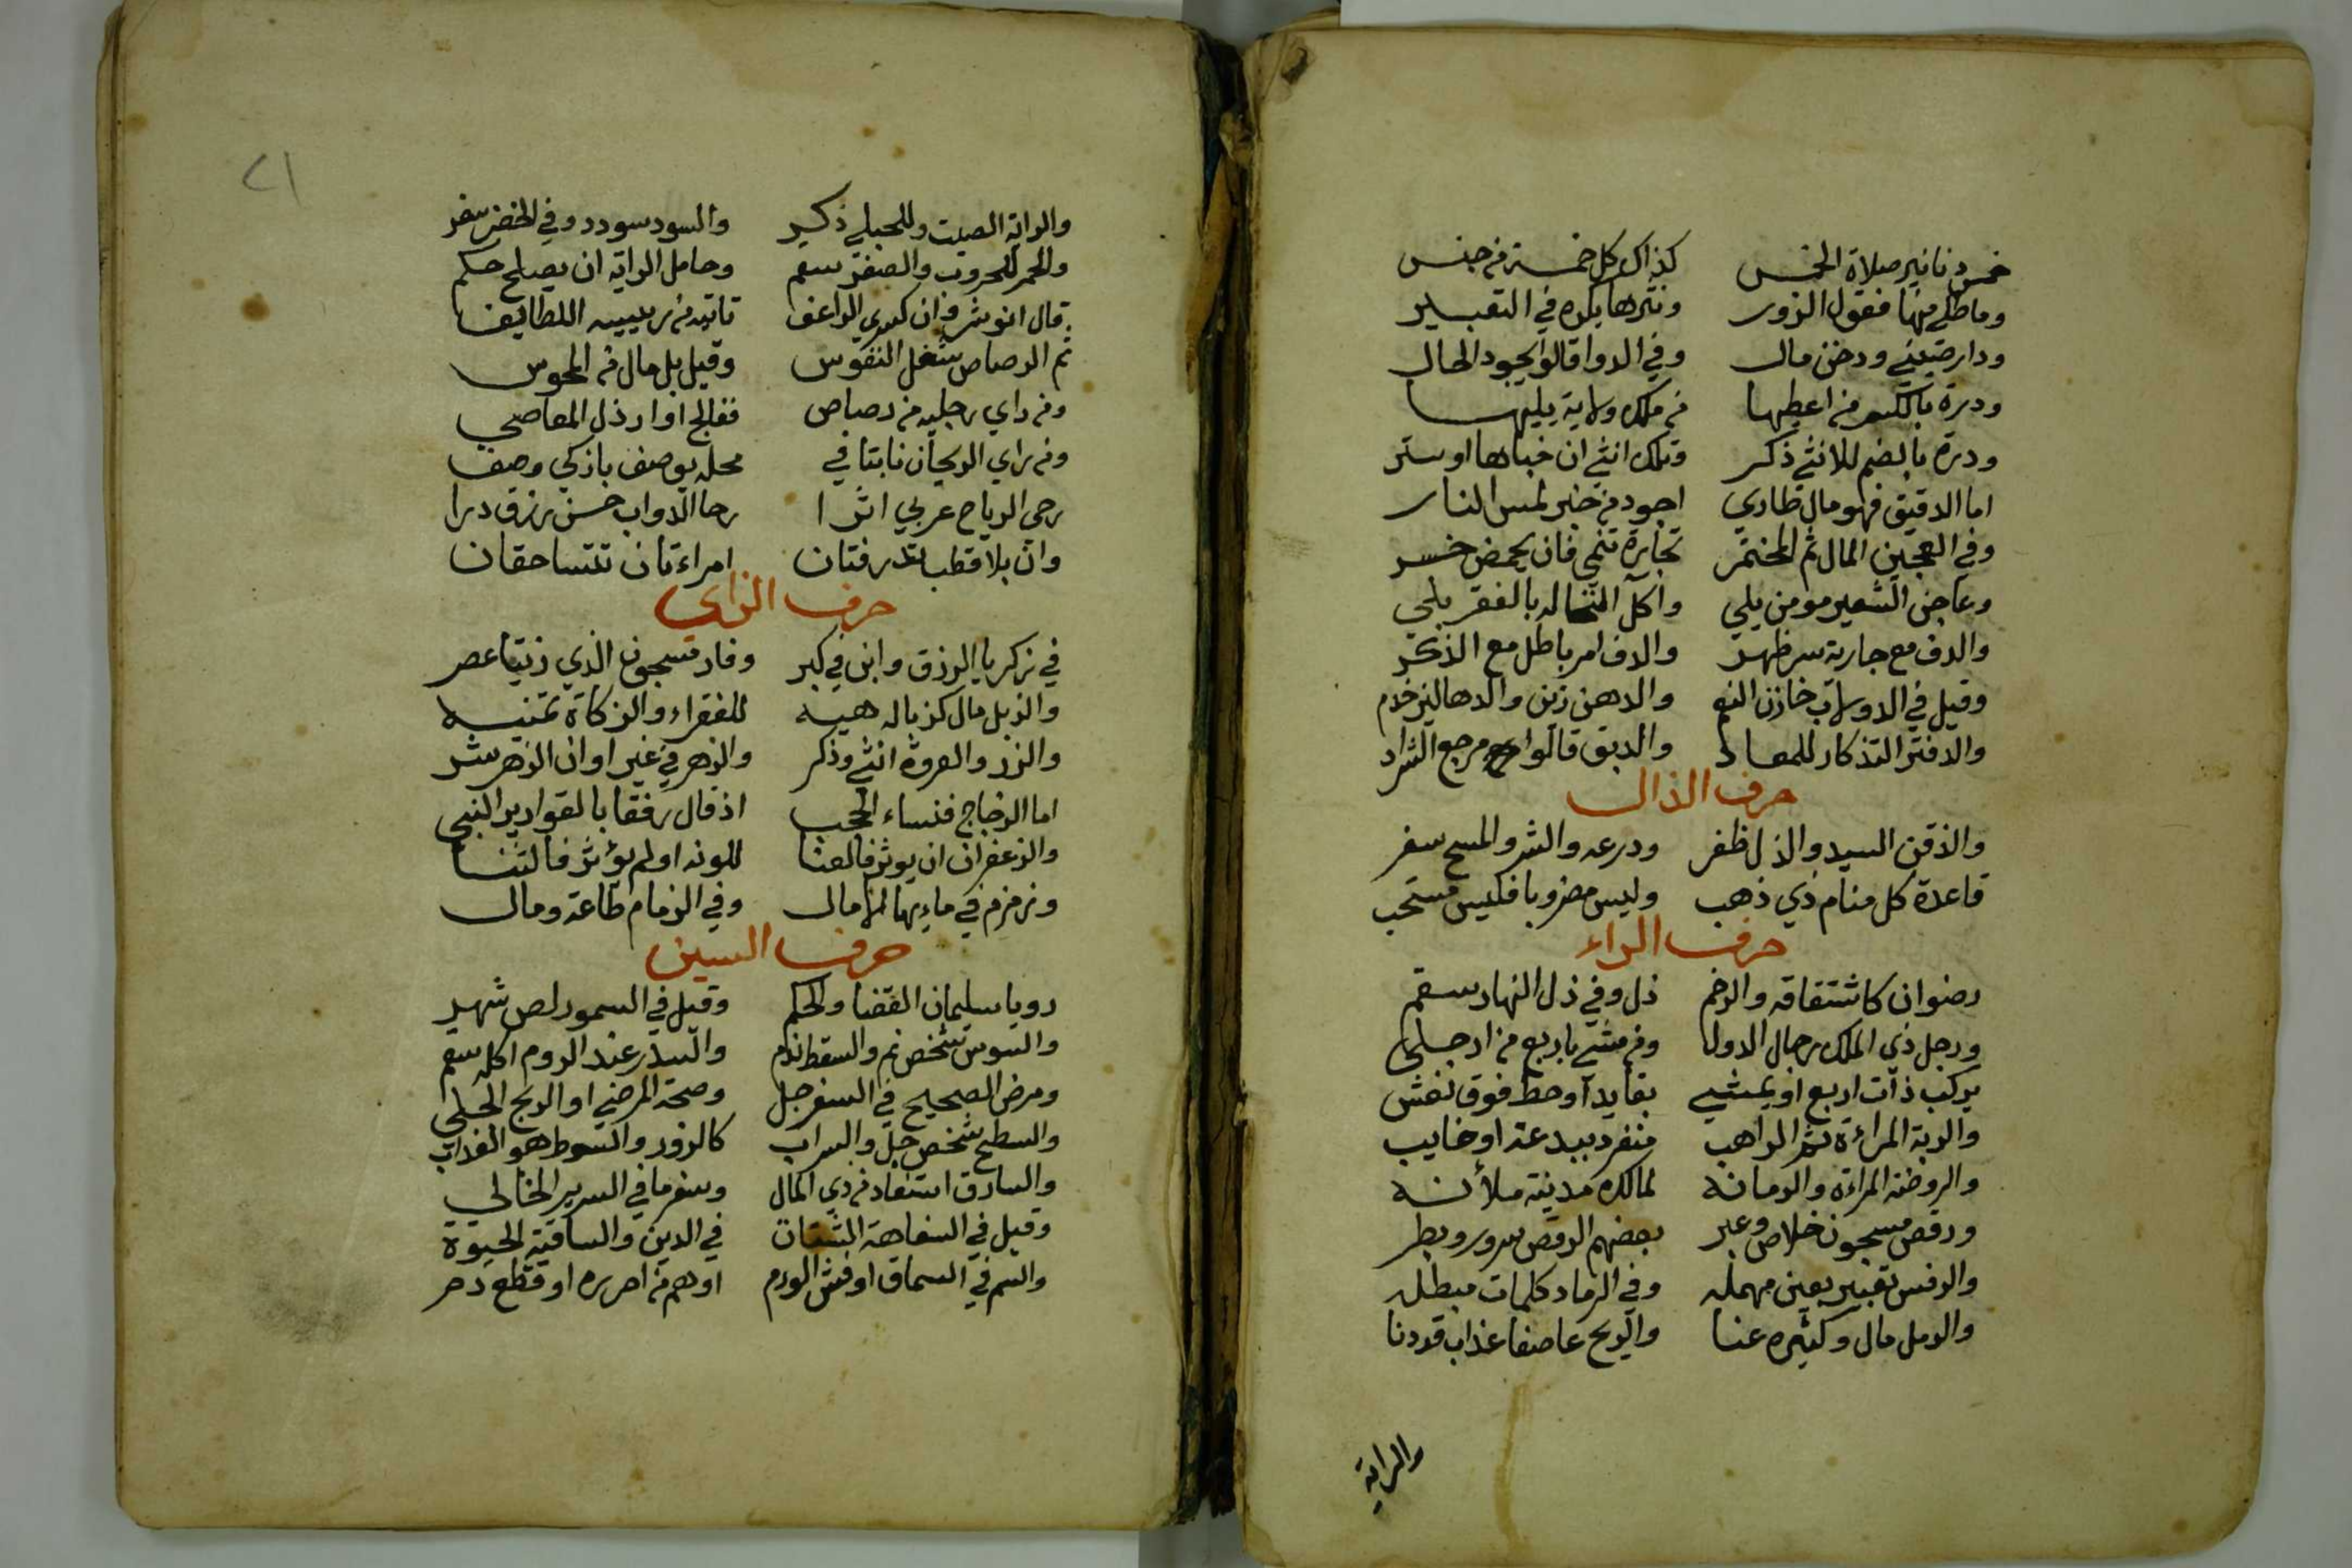 خمس دنانير صلاة الخمس كذاك كل خمسة من جنس
وما طلي منها فقول الزور ونثرها يكره في التعبير
ودار ضيفي ودخن مال وفي الدوا قالوا يجود الحال
ودرة بالكسر من اعطيها من ملك ولاية يليها
ودرة بالضم للانثي ذكر وتلك انثي ان خباها او ستر
اما الدقيق فهو مال طاري اجود من خبز لمس النار
وفي العجين المال ثم المختمر تجارة تنمي فان يحمض خسر
وعاجن الشعير مومن يلي واكل النخاله بالفقر بلي
والدف مع جارية سر ظهر والدف امر باطل مع الذكر
وقيل في الدولاب خازن النعم والدهن زين والدهاليز خدم
والدفتر التذكار للمعاد والدبق قالوا مرجع الشراد
حرف الذال
والذقن السيد والذل ظفر ودرعه والشر والمسح سفر
قاعدة كل منام ذي ذهب وليس مضروبا فليس مستحب
حرف الراء
رضوان كاشتقاقه والرخم ذل وفي ذل النهار سقم
ورجل ذي الملك رجال الدولا ومن مشي باربع من ارجلي
يركب ذات اربع او يمشي بقايد او حط فوق نعش
والربة المراءة ثم الراهب منفرد ببدعة او خايب
والروضة المراءة والرمانه لمالك مدينة ملأنه
ورقص مسجون خلاص وعبر بعضهم الرقص سرور وبطر
والرفس تعبير بعين مهمله وفي الرماد كلمات مبطله
والرمل مال وكثيره عنا والريح عاصفا عذاب قد دنا
والراية
٢١
والراية الصيت وللحبلي ذكير والسود سودد وفي الخضر سفر
والحمر للحروب والصفر سقم وحامل الراية ان يصلح حكم
قال انوشروان كسري الراعف تاتيه من رييسه اللطايف
ثم الرصاص شغل النفوس وقيل بل مال من المجوس
ومن راي رجليه من رصاص ففالج او ارذل المعاصي
ومن راي الريحان نابتا في محله يوصف بازكي وصف
رحي الرياح عربي اثرا رحا الدواب حسن رزق درا
وان بلا قطب تدرفتان امراءتان تتساحقان
حرف الزاي
في زكريا الرزق وابن في كبر وفاز مسجون الذي زيتا عصر
والزبل مال كزباله هيه للفقراء والزكاة تمنيه
والزر والعروة انثي وذكر والزهر في غير اوان الزهر شر
اما الزجاج فنساء الحجب اذ قال رفقا بالقوارير النبي
والزعفران ان يوثر فالعنا للونه اولم يؤثر فالثنا
وزمزم في مايها المامال وفي الزمام طاعة ومال
حرف السين
رويا سليمان القضا والحكم وقيل في السمور لص شهير
والسوس شخص نم والسقط ندم والسدر عند الروم اكله سقم
ومرض الصحيح في السفرجل وصحة المرضي او الربح الجلي
والسطح شخص جل والسراب كالزور والسوط هو العذاب
والسارق استفاد من ذي المال وسفر ما في السرير الخالي
وقيل في السفاهة الشتات في الدين والساقية الحيوة
والسم في السماق او فش الورم او هم من احرره او قطع رحر